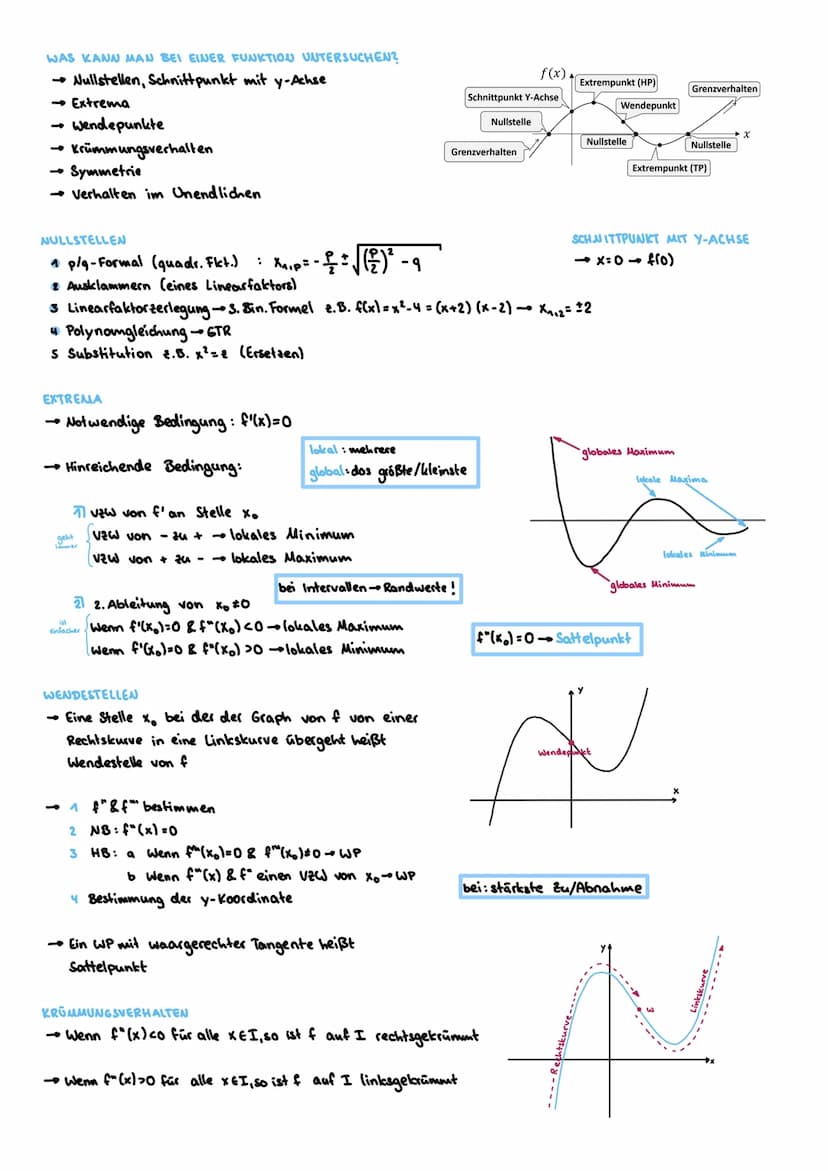 WAS KANN MAN BEI EINER FUNKTION UNTERSUCHEN?
→ Nullstellen, Schnittpunkt mit y-Achse
→ Extrema
→ Wendepunkte
→ Krümmungsverhalten
→ Symmetrie
→ Verhalten im Unendlichen
f(x)
Extrempunkt (HP)
Grenzverhalten
Schnittpunkt Y-Achse
Wendepunkt
Nullstelle
x
Nullstelle
Nullstelle
Grenzverhalten
Extrempunkt (TP)
NULLSTELLEN
1 p/q-Formal (quadr. Fkt.) : x₁,p = -p/2 ± √((p/2)² - q
2 Ausklammern (eines Linearfaktors)
3 Linearfaktorzerlegung → 3. Bin. Formel z.B. f(x) = x²-4 = (x+2) (x-2) → x₁,₂ = ±2
4 Polynomgleichung → GTR
5 Substitution z.B. x² = z (Ersetzen)
SCHNITTPUNKT MIT Y-ACHSE
→ x=0 → f(0)
EXTREMA
→ Notwendige Bedingung: f'(x)=0
→ Hinreichende Bedingung:
lokal : mehrere
global: das größte/kleinste
1) VZW von f' an Stelle x₀
geht immer
VZW von - zu + → lokales Minimum
VZW von + zu - → lokales Maximum
bei Intervallen → Randwerte!
2) 2. Ableitung von x₀ ≠0
ist einfacher
Wenn f'(x₀)=0 & f"(x₀) <0 → lokales Maximum
Wenn f'(x₀)=0 & f"(x₀) >0 → lokales Minimum
f"(x₀) = 0 → Sattelpunkt
globales Maximum
lokale Maxima
lokales Minimum
globales Minimum
WENDESTELLEN
→ Eine Stelle x₀ bei der der Graph von f von einer
Rechtskurve in eine Linkskurve übergeht heißt
Wendestelle von f
y
Wendepunkt
x
→ 1 f" & f"' bestimmen
2 NB: f"(x) = 0
3 HB: a Wenn f"(x₀)=0 & f"'(x₀)≠0 → WP
b Wenn f"(x) & f" einen VZW von x₀ → WP
4 Bestimmung der y-Koordinate
bei: stärkste Zu/Abnahme
→ Ein WP mit waargerechter Tangente heißt
Sattelpunkt
KRÜMMUNGSVERHALTEN
→ Wenn f"(x)<0 für alle x∈I, so ist f auf I rechtsgekrümmt
→ Wenn f"(x)>0 für alle x∈I, so ist f auf I linksgekrümmt
y
Rechtskurve
Linkskurve
x